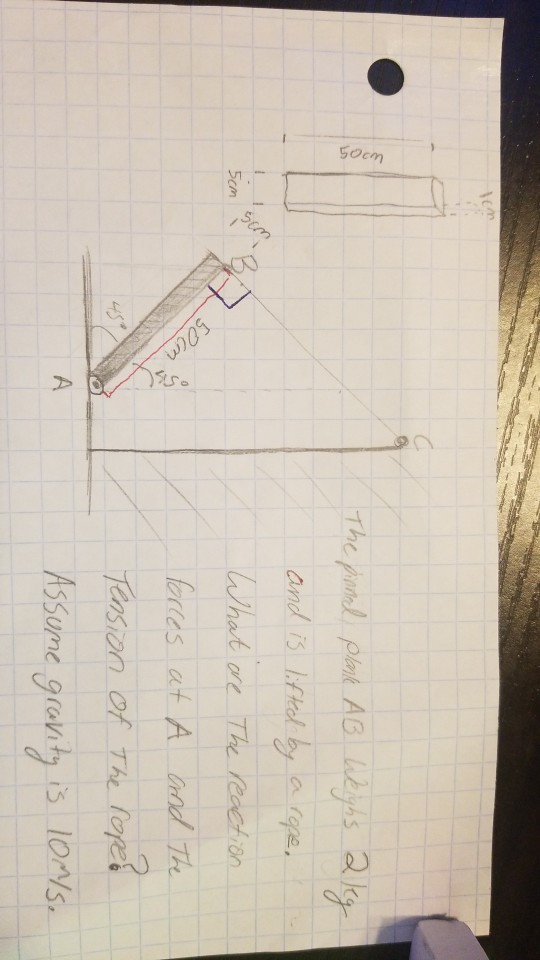 50cm
1cm
5cm
5cm
B
C
45°
50cm
45°
A
The pinned, plank AB weighs 2kg
and is lifted by a rope.
What are The reaction
forces at A and The
Tension of The rope?
Assume gravity is 10m/s.